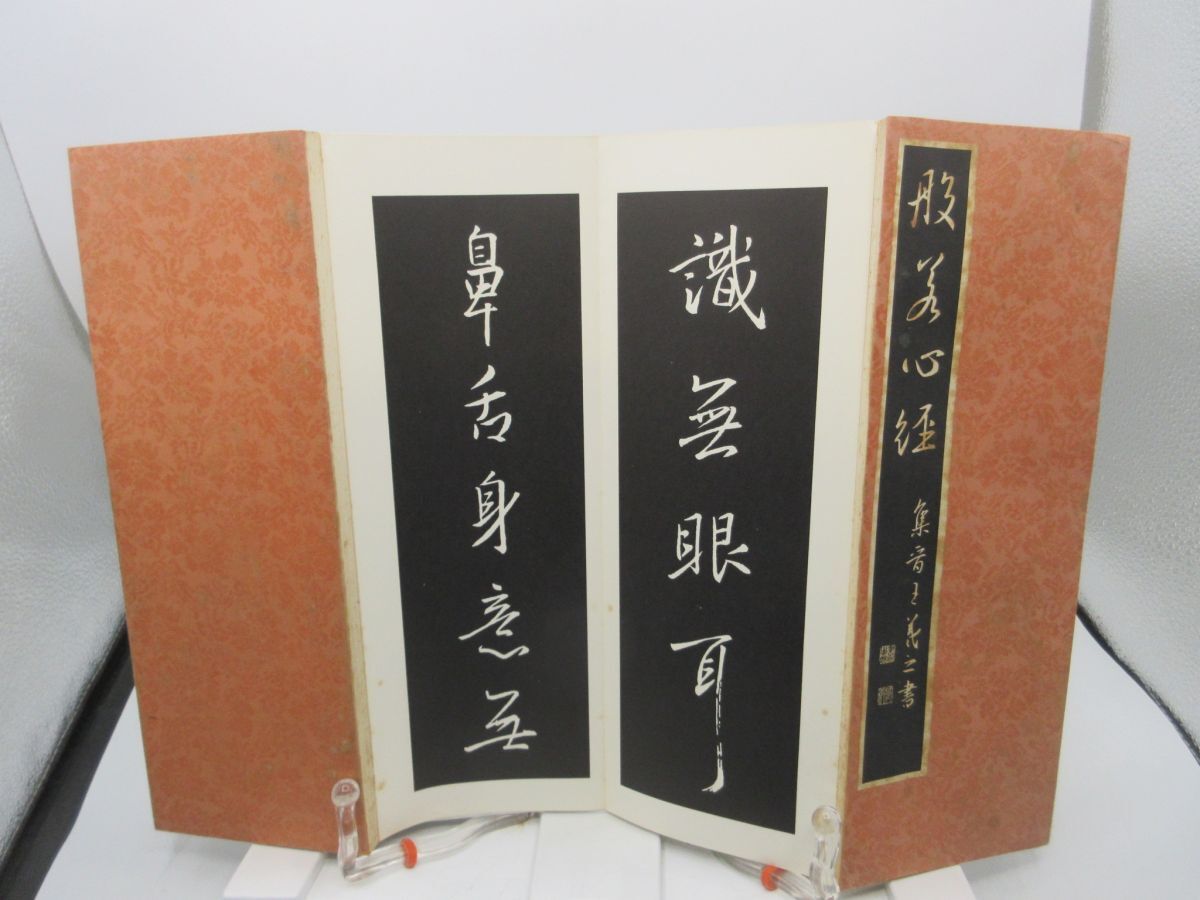 般若心経
集晋王羲之書
識無眼耳
鼻舌身意無